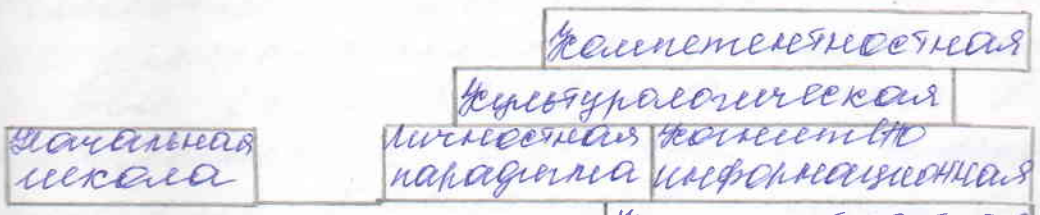 Компетентностная
Культурологическая
Начальная школа
личностная парадигма
Когнитивно информационная